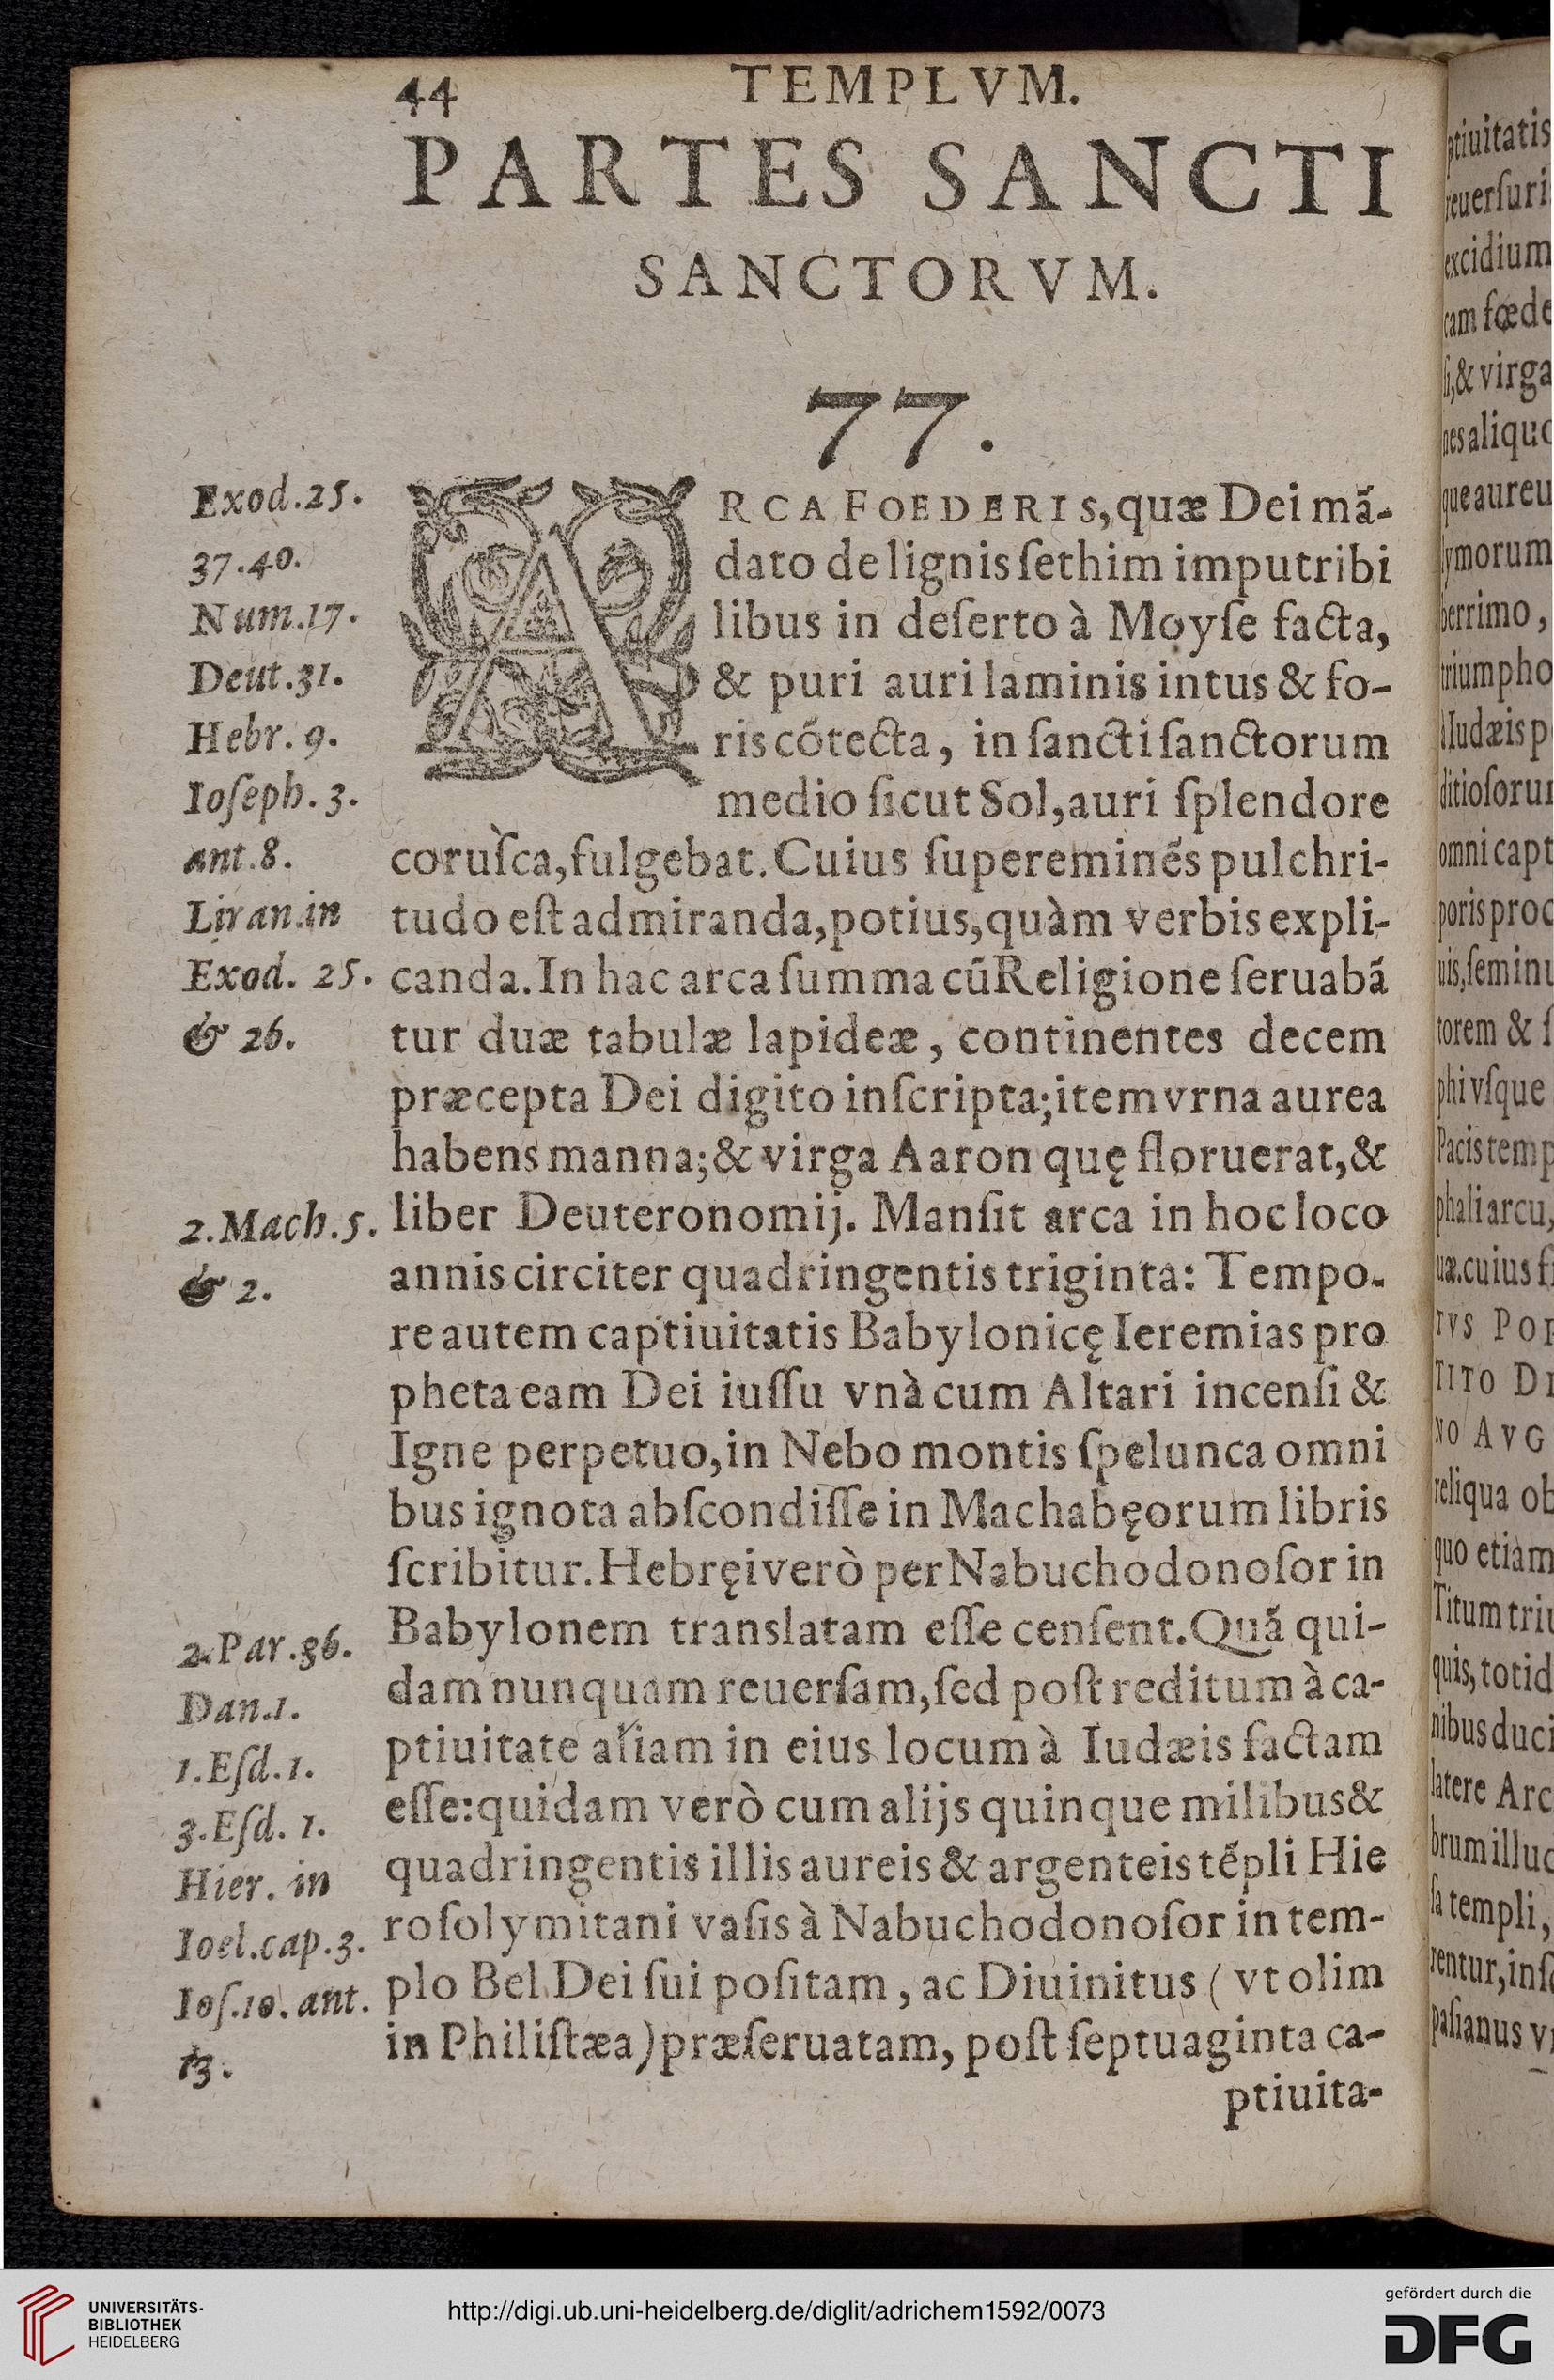 44 TEMPLVM.
PARTES SANCTI
SANCTORVM.
77.
Exod.25.
37.40.
Num.17.
Deut.31.
Hebr. 9.
Ioſeph.3.
ant.8.
Liran.in
Exod. 25.
& 26.
2.Mach.5.
& 2.
2.Par.36.
Dan.1.
1.Eſd.1.
3.Eſd. 1.
Hier. in
Ioel.cap.3.
Ioſ.10.ant.
13.
ARCA FOEDERIS, quæ Dei mã-
dato de lignis ſethim imputribi
libus in deſerto à Moyſe facta,
& puri auri laminis intus & fo-
ris cõtecta, in ſancti ſanctorum
medio ſicut Sol, auri ſplendore
coruſca, fulgebat. Cuius ſupereminẽs pulchri-
tudo eſt admiranda, potius, quàm verbis expli-
canda. In hac arca ſumma cũ Religione ſeruabã
tur duæ tabulæ lapideæ, continentes decem
præcepta Dei digito inſcripta; item vrna aurea
habens manna; & virga Aaron quę floruerat, &
liber Deuteronomij. Manſit arca in hoc loco
annis circiter quadringentis triginta: Tempo-
re autem captiuitatis Babylonicę Ieremias pro
pheta eam Dei iuſſu vnà cum Altari incenſi &
Igne perpetuo, in Nebo montis ſpelunca omni
bus ignota abſcondiſſe in Machabęorum libris
ſcribitur. Hebręi verò per Nabuchodonoſor in
Babylonem translatam eſſe cenſent. Quã qui-
dam nunquam reuerſam, ſed poſt reditum à ca-
ptiuitate aliam in eius locum à Iudæis factam
eſſe: quidam verò cum alijs quinque milibus &
quadringentis illis aureis & argenteis tẽpli Hie
roſolymitani vaſis à Nabuchodonoſor in tem-
plo Bel Dei ſui poſitam, ac Diuinitus (vt olim
in Philiſtæa) præſeruatam, poſt ſeptuaginta ca-
ptiuita-
ptiuitatis
reuerſuri
excidium
cam fœde
ſi, & virga
nes aliquo
que aureu
lymorum
berrimo,
triumpho
à Iudæis p
ditioſorum
omni capt
poris proc
uis, ſeminu
torem & ſ
phi vſque
Pacis temp
phali arcu,
uæ. cuius fi
TVS POP
TITO DI
NO AVG
reliqua ob
quo etiam
Titum triu
quis, totid
nibus duci
latere Arc
brum illuc
ſa templi,
rentur, inſc
paſianus v
UNIVERSITÄTS-
BIBLIOTHEK
HEIDELBERG
http://digi.ub.uni-heidelberg.de/diglit/adrichem1592/0073
gefördert durch die
DFG